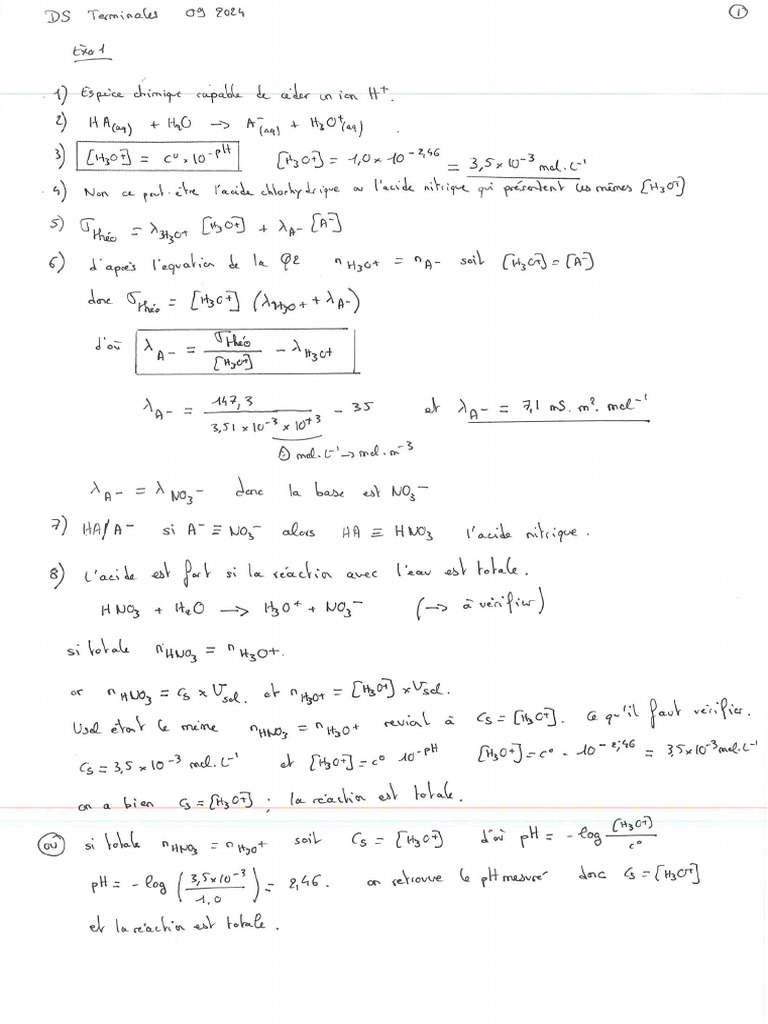 DS Terminales 09 2024 ①
Exo 1
1) Espèce chimique capable de céder un ion H⁺.
2) HA(aq) + H₂O → A⁻(aq) + H₃O⁺(aq)
3) [H₃O⁺] = c° × 10^-pH [H₃O⁺] = 1,0 × 10^-2,46 = 3,5 × 10⁻³ mol.L⁻¹
4) Non ce peut-être l'acide chlorhydrique ou l'acide nitrique qui présentent les mêmes [H₃O⁺]
5) σthéo = λH₃O⁺ [H₃O⁺] + λA⁻ [A⁻]
6) d'après l'équation de la Q2 nH₃O⁺ = nA⁻ soit [H₃O⁺] = [A⁻]
donc σthéo = [H₃O⁺] (λH₃O⁺ + λA⁻)
d'où λA⁻ = σthéo / [H₃O⁺] − λH₃O⁺
λA⁻ = 147,3 / (3,51 × 10⁻³ × 10⁺³) − 35 et λA⁻ = 7,1 mS. m². mol⁻¹
mol.L⁻¹ → mol.m⁻³
λA⁻ = λNO₃⁻ donc la base est NO₃⁻
7) HA/A⁻ si A⁻ ≡ NO₃⁻ alors HA ≡ HNO₃ l'acide nitrique.
8) L'acide est fort si la réaction avec l'eau est totale.
HNO₃ + H₂O → H₃O⁺ + NO₃⁻ (→ à vérifier)
si totale nHNO₃ = nH₃O⁺.
or nHNO₃ = Cs × Vsol. et nH₃O⁺ = [H₃O⁺] × Vsol.
Vsol étant le même nHNO₃ = nH₃O⁺ revient à Cs = [H₃O⁺]. Ce qu'il faut vérifier.
Cs = 3,5 × 10⁻³ mol.L⁻¹ et [H₃O⁺] = c° 10^-pH [H₃O⁺] = c° · 10^-2,46 = 3,5 × 10⁻³ mol.L⁻¹
on a bien Cs = [H₃O⁺] ; la réaction est totale.
ou si totale nHNO₃ = nH₃O⁺ soit Cs = [H₃O⁺] d'où pH = −log [H₃O⁺] / c°
pH = −log (3,5 × 10⁻³ / 1,0) = 2,46. on retrouve le pH mesuré donc Cs = [H₃O⁺]
et la réaction est totale.